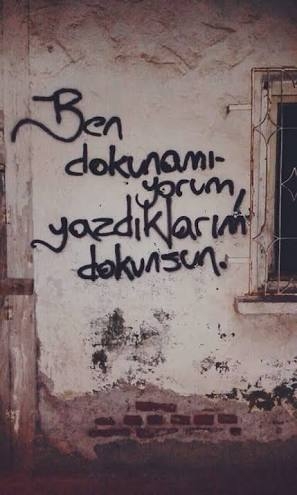 Ben
dokunamı-
yorum,
yazdıklarım
dokunsun.